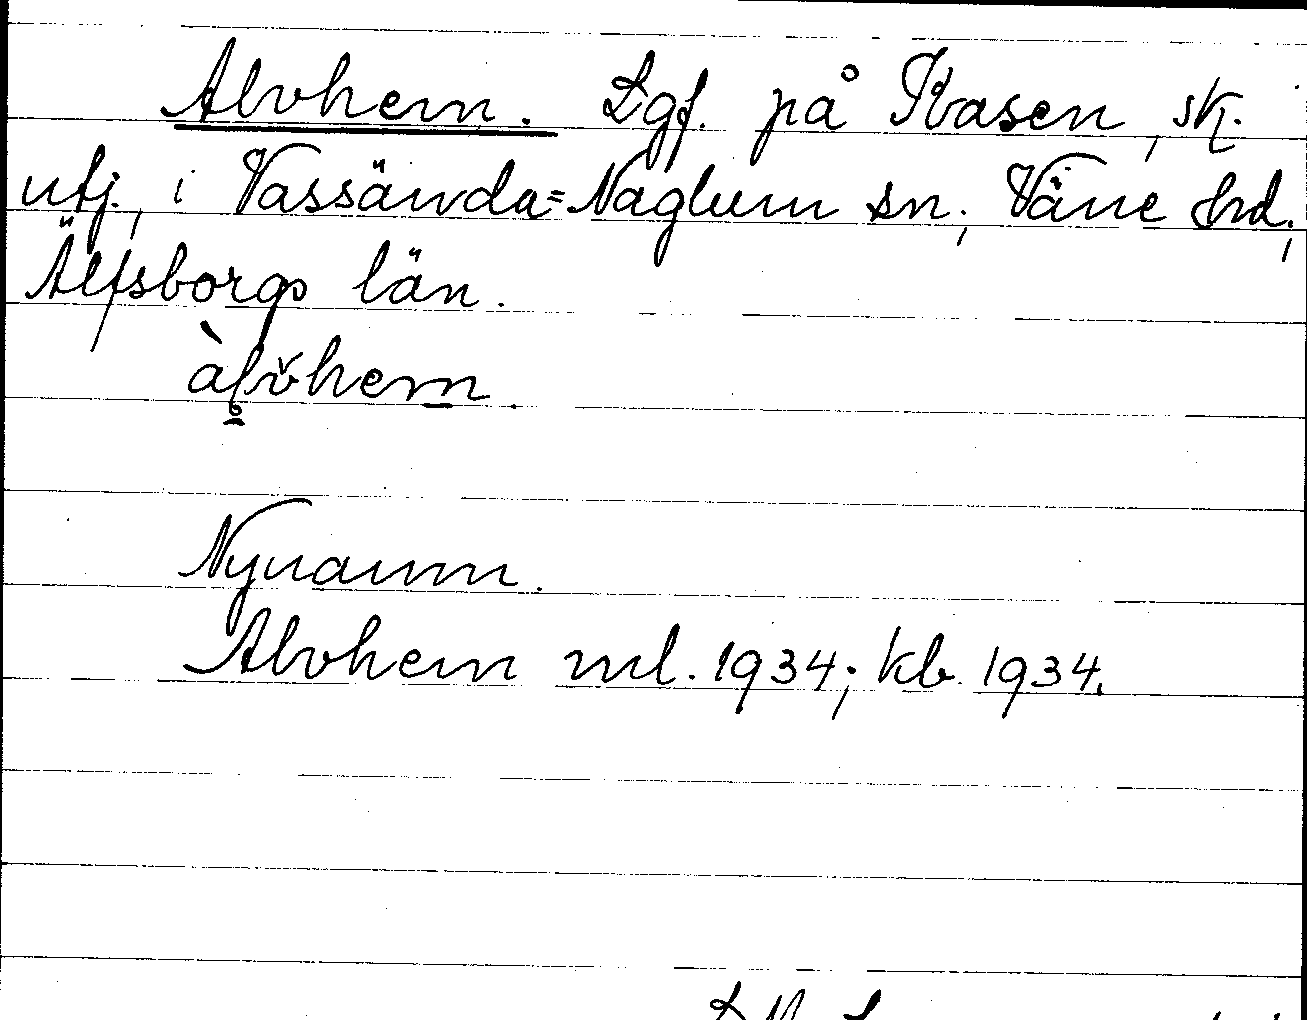 Alvhem. Lgf. på Kasen, sk.
utj., i Vassända=Naglum sn, Väne hd,
Älfsborgs län.
Nynamn.
Alvhem ml. 1934; kb 1934.